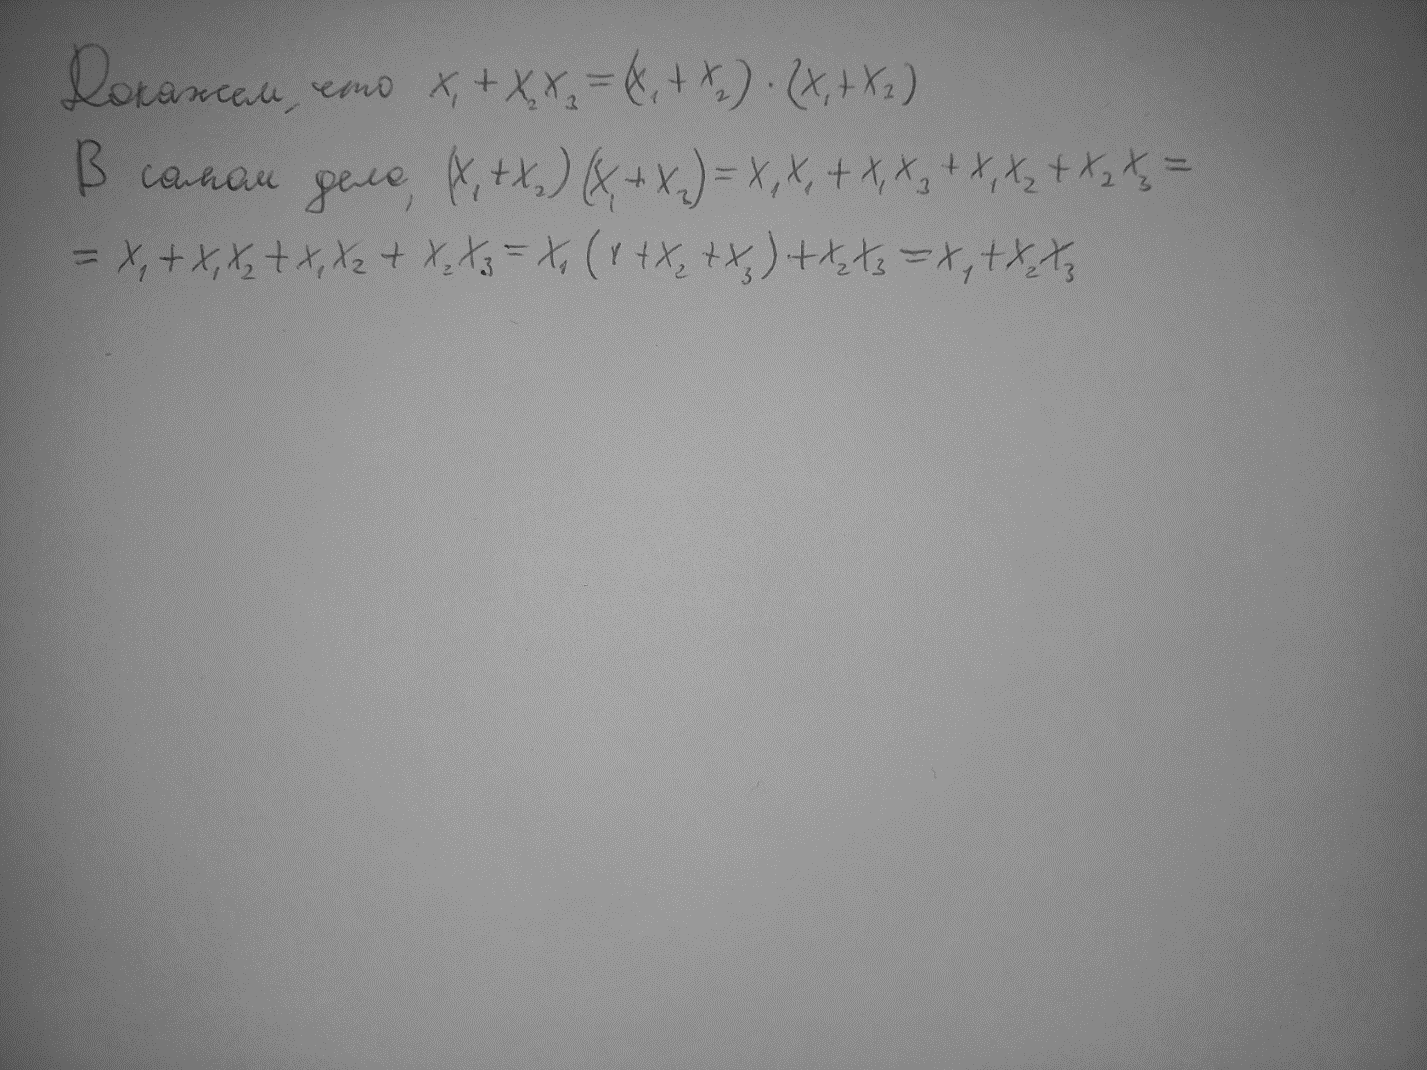 Докажем, что x₁ + x₂x₃ = (x₁ + x₂) · (x₁ + x₃)
В самом деле, (x₁ + x₂)(x₁ + x₃) = x₁x₁ + x₁x₃ + x₁x₂ + x₂x₃ =
= x₁ + x₁x₂ + x₁x₂ + x₂x₃ = x₁(1 + x₂ + x₃) + x₂x₃ = x₁ + x₂x₃